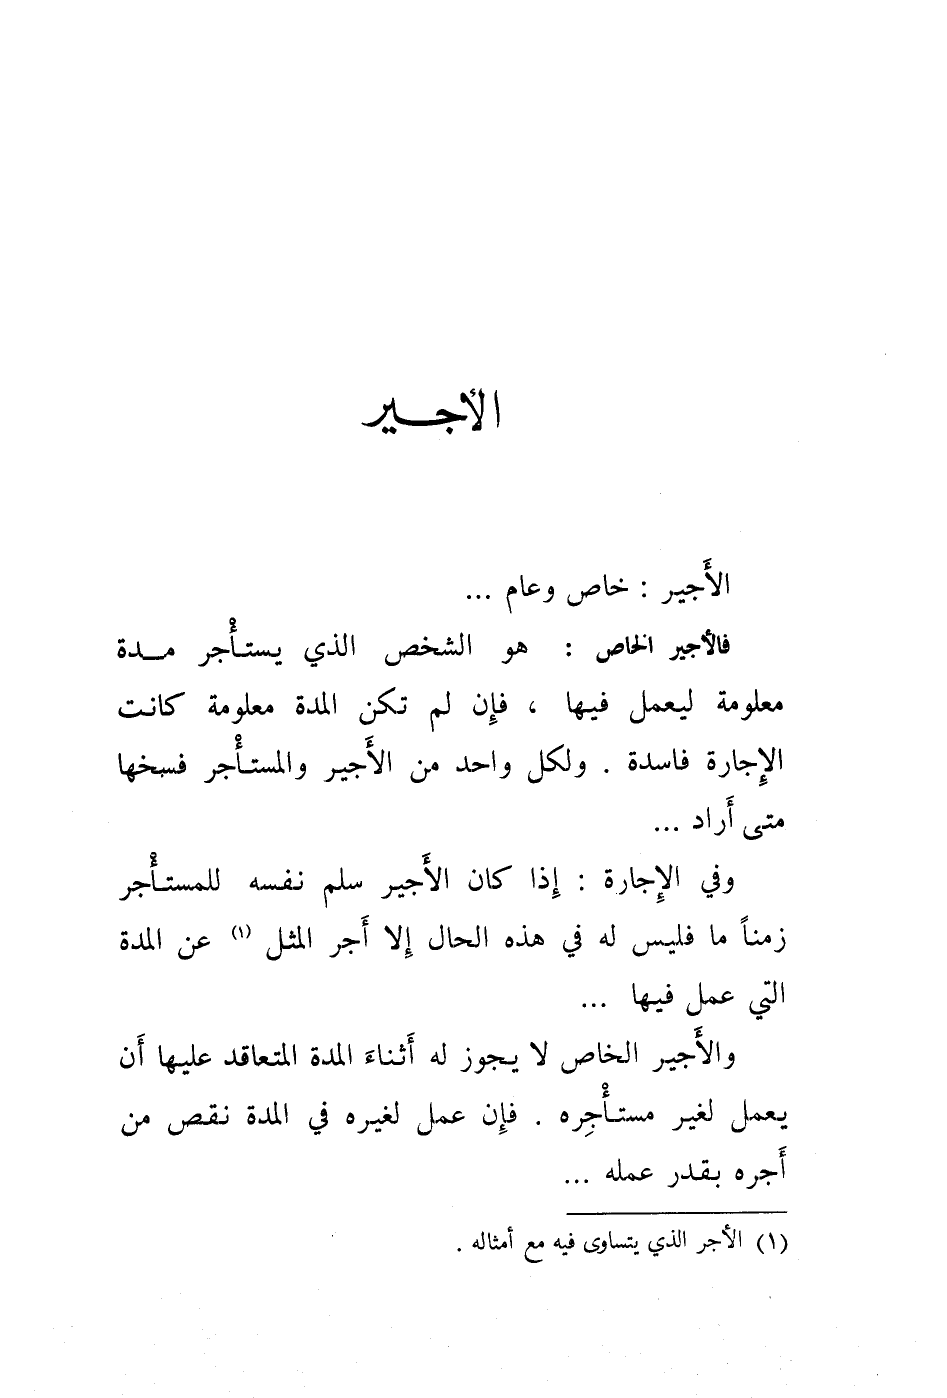 الأجـــير
الأَجير : خاص وعام ...
فالأجير الخاص : هو الشخص الذي يستـأْجر مـــدة
معلومة ليعمل فيها ، فإِن لم تكن المدة معلومة كانت
الإِجارة فاسدة . ولكل واحد من الأَجير والمستـأْجر فسخها
متى أَراد ...
وفي الإِجارة : إِذا كان الأَجير سلم نفسه للمستـأْجر
زمناً ما فليس له في هذه الحال إِلا أَجر المثل (١) عن المدة
التي عمل فيها ...
والأَجير الخاص لا يجوز له أَثناءَ المدة المتعاقد عليها أَن
يعمل لغير مستـأْجِره . فإِن عمل لغيره في المدة نقص من
أَجره بقدر عمله ...
(١) الأجر الذي يتساوى فيه مع أمثاله .